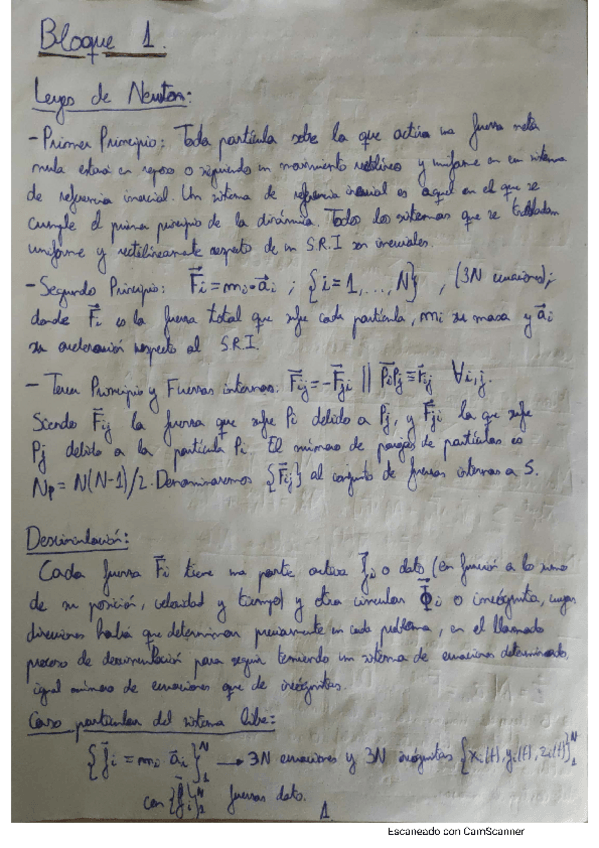 Bloque 1.
Leyes de Newton:
- Primer Principio: Toda partícula sobre la que actúa una fuerza neta
nula estará en reposo o siguiendo un movimiento rectilíneo y uniforme en un sistema
de referencia inercial. Un sistema de referencia inercial es aquel en el que se
cumple el primer principio de la dinámica. Todos los sistemas que se trasladen
uniforme y rectilíneamente respecto de un S.R.I son inerciales.
- Segundo Principio: F⃗i = mi·a⃗i ; {i=1,...,N} , (3N ecuaciones);
donde F⃗i es la fuerza total que sufre cada partícula, mi su masa y a⃗i
su aceleración respecto al S.R.I.
- Tercer Principio y Fuerzas internas: F⃗ij = -F⃗ji || PiPj ≡ r⃗ij ∀i,j.
Siendo F⃗ij la fuerza que sufre Pi debido a Pj, y F⃗ji la que sufre
Pj debido a la partícula Pi. El número de parejas de partículas es
Np = N(N-1)/2. Denominaremos {F⃗ij} al conjunto de fuerzas internas a S.
Desvinculación:
Cada fuerza F⃗i tiene una parte activa f⃗i o dato (en función a lo sumo
de su posición, velocidad y tiempo) y otra vincular Φ⃗i o incógnita, cuyas
direcciones habrá que determinar previamente en cada problema, en el llamado
proceso de desvinculación para seguir teniendo un sistema de ecuaciones determinado,
igual número de ecuaciones que de incógnitas.
Caso particular del sistema libre:
{f⃗i = mi·a⃗i}₁ᴺ → 3N ecuaciones y 3N incógnitas {xi(t), yi(t), zi(t)}₁ᴺ
con {f⃗i}₁ᴺ fuerzas dato.
1
Escaneado con CamScanner